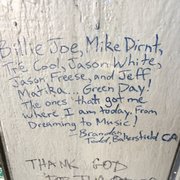 Billie Joe, Mike Dirnt,
Tré Cool, Jason White,
Jason Freese, and Jeff,
Matika... Green Day!
The ones that's got me
where I am today. From
Dreaming to Music!
Brandon
Todd, Bakersfield CA
THANK GOD